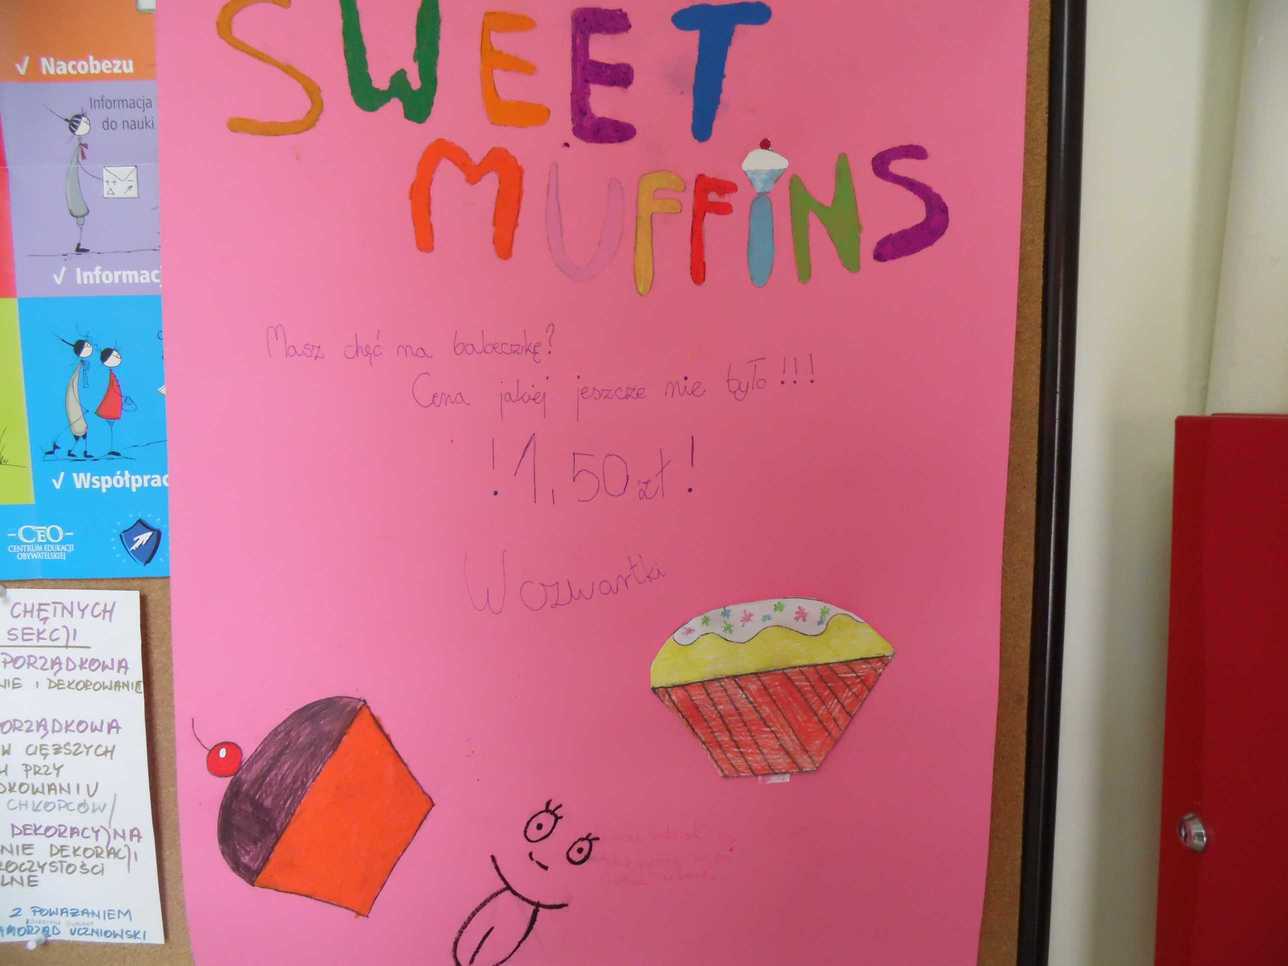 SWEET
MUFFINS
Masz chęć na babeczkę?
Cena jakiej jeszcze nie było!!!
!1,50 zł!
W czwartki
√ Nacobezu
Informacja
do nauki
√ Informac
√ Współprac
CEO
CENTRUM EDUKACJI
OBYWATELSKIEJ
CHĘTNYCH
SEKCJI
PORZĄDKOWA
NIE I DEKOROWANIE
ORZĄDKOWA
W CIĘŻSZYCH
PRZY
DKOWANIU
CHŁOPCÓW/
DEKORACYJNA
NIE DEKORACJI
ROCZYSTOŚCI
LNE
Z POWAŻANIEM
AMORZĄD UCZNIOWSKI